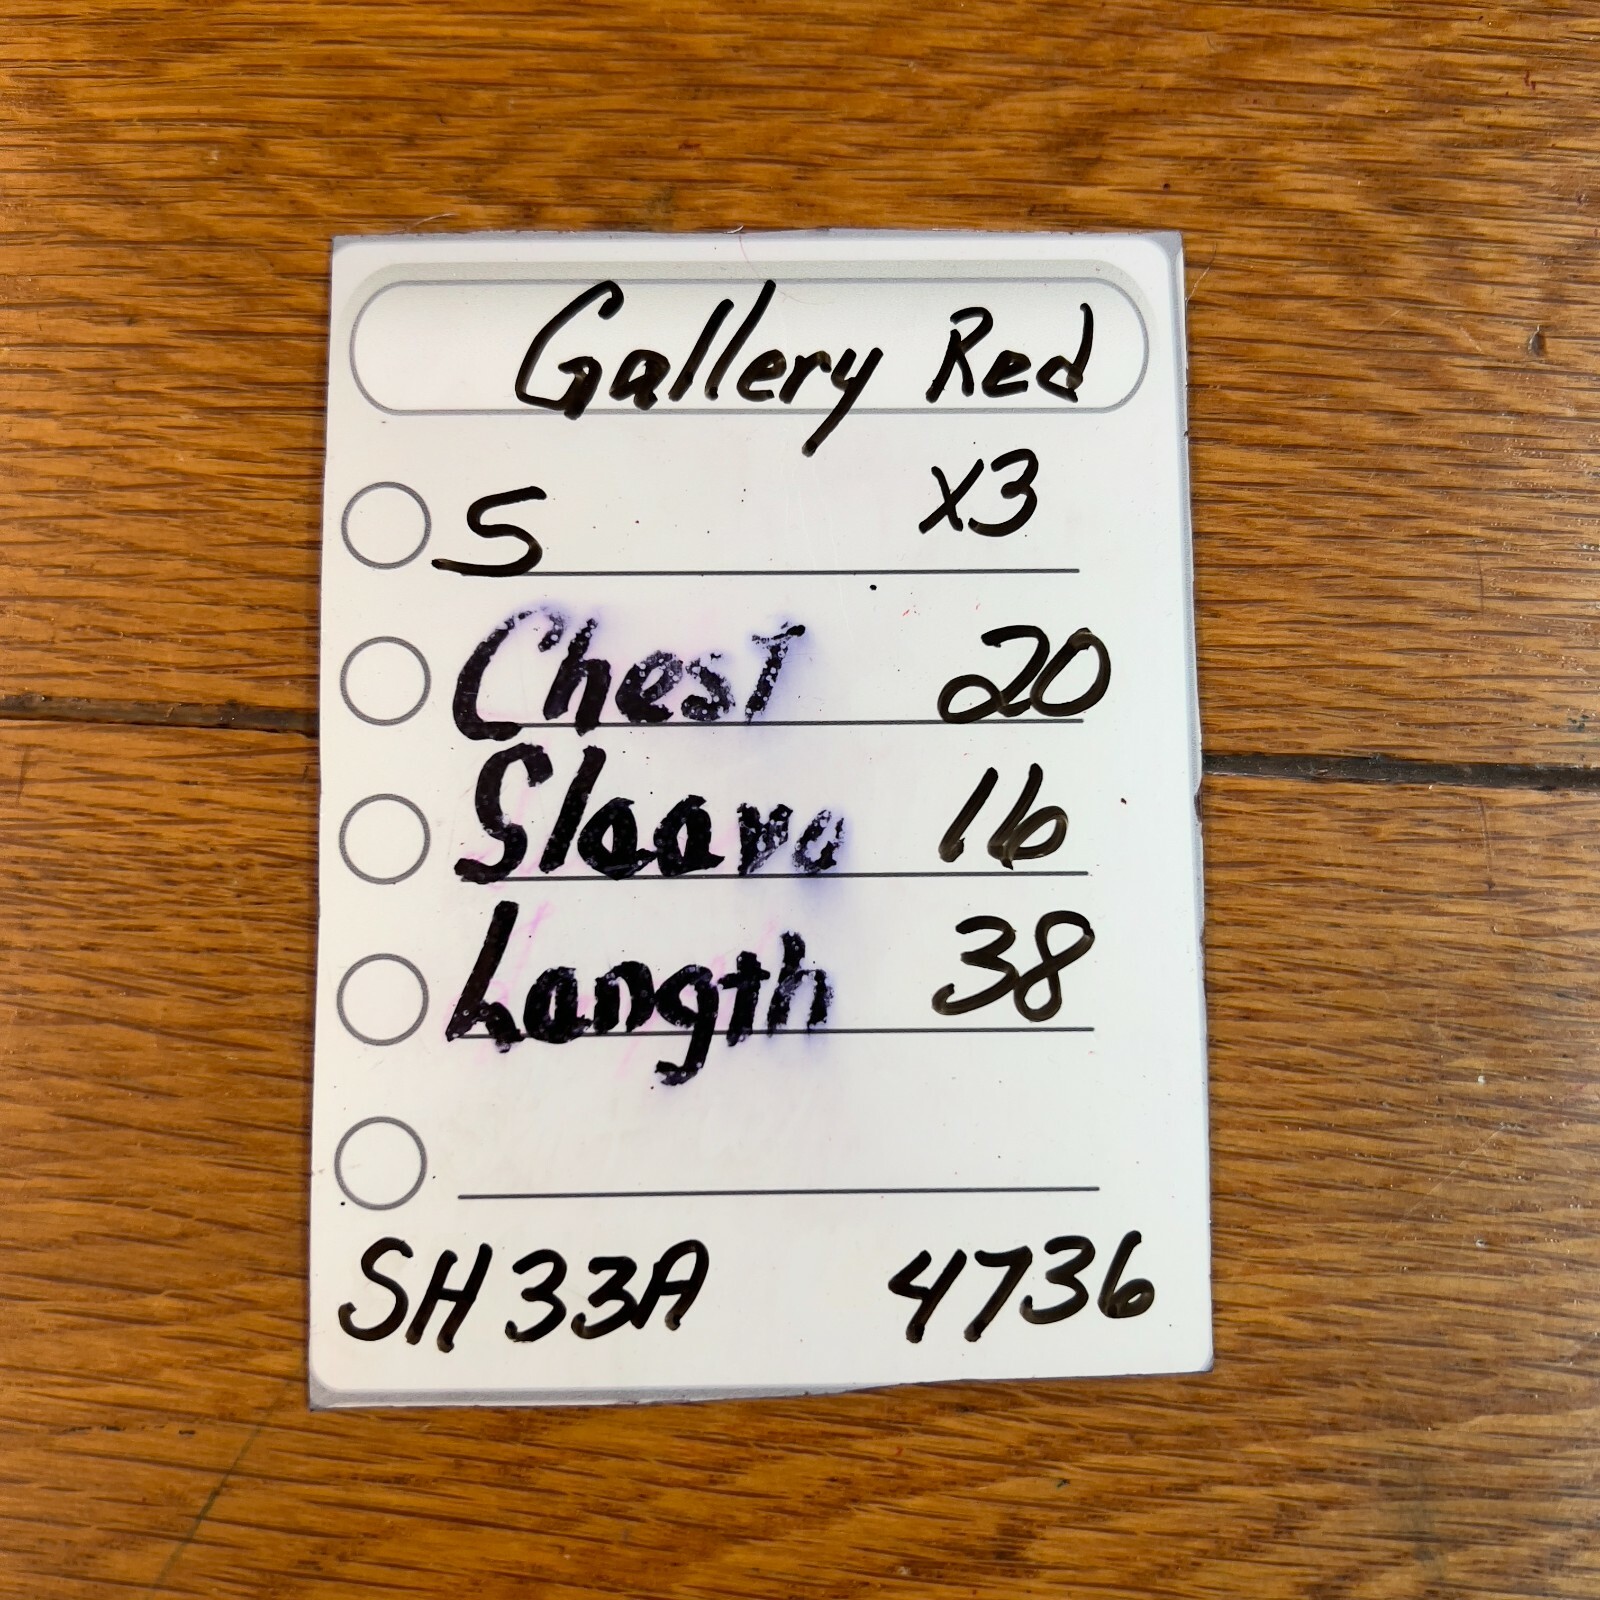 Gallery Red
S x3
Chest 20
Sleeve 16
Length 38
SH33A 4736